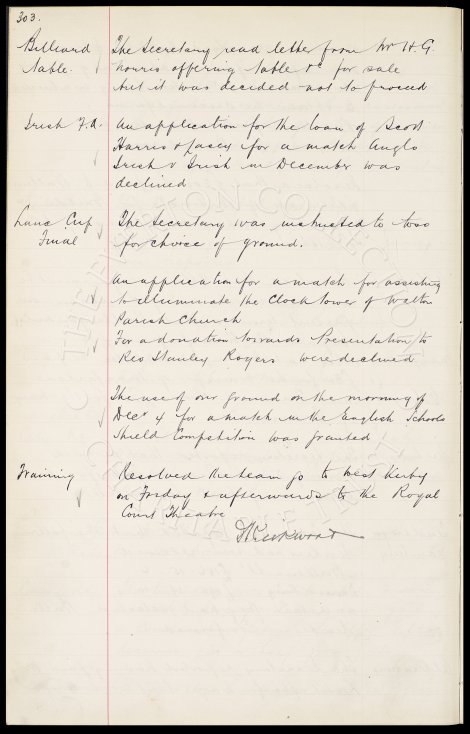 303.
Billiard The Secretary read letter from Mr H. G.
Table. Norris offering table &c for sale
but it was decided not to proceed
Irish F.A. An application for the loan of Scott
Harris & Lacey for a match Anglo
Irish v Irish in December was
declined
Lanc Cup The Secretary was instructed to toss
Final for choice of ground.
An application for a match for assisting
to illuminate the Clock tower of Walton
Parish Church
For a donation towards Presentation to
Rev Stanley Rogers were declined
The use of our ground on the morning of
Decr 4 for a match in the English Schools
Shield Competition was granted
Training Resolved the team go to West Kirby
on Friday & afterwards to the Royal
Court Theatre
Kirkwood
THE EVERTON COLLECTION
CHARITABLE TRUST